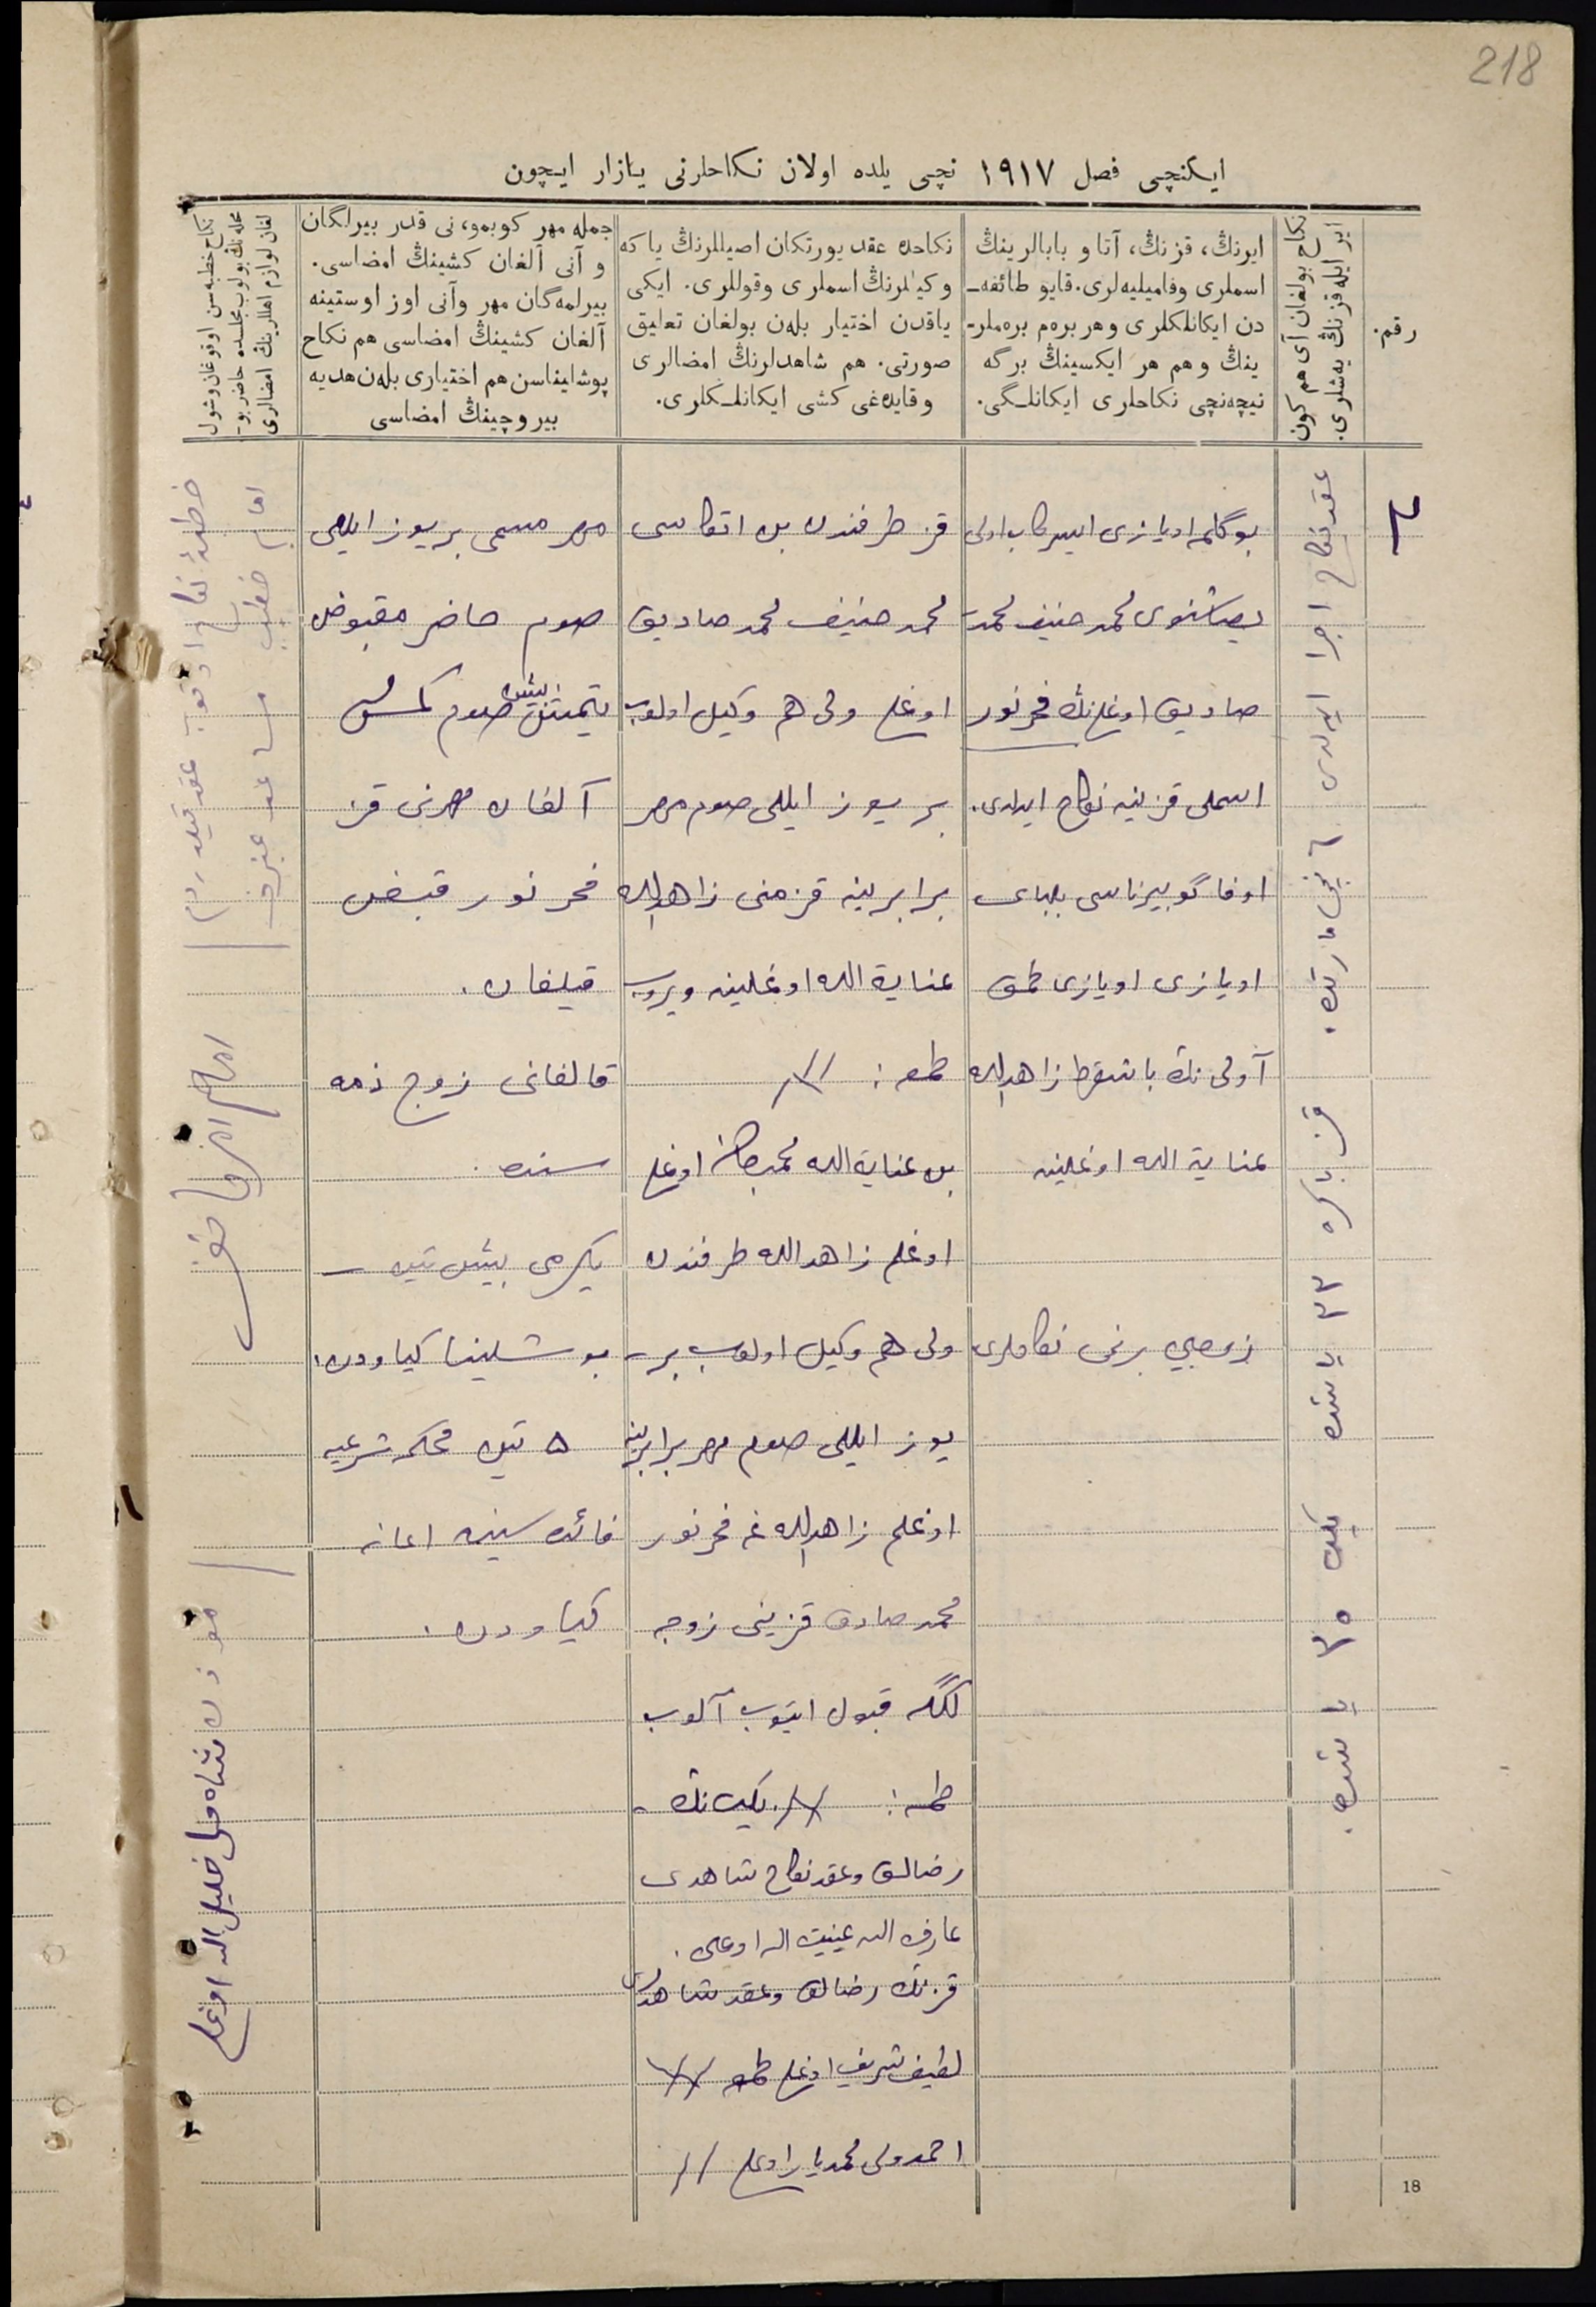 218
ایکنچی فصل ١٩١٧ نچی یلده اولان نکاحلرنی یازار ایچون
رقم.
نکاح بولغان آی هم کون
ایر ایله قزنڭ یه‌شلری.
ایرنڭ، قزنڭ، آتا و بابالرینڭ
اسملری وفامیلیه‌لری. قایو طائفه‌ـ
دن ایکانلکلری وهر بره‌م بره‌ملرـ
ینڭ وهم هر ایکسینڭ برگه
نیچه‌نچی نکاحلری ایکانلـگی.
نکاحده عقد یورتکان اصیللرنڭ یا که
وکیللرنڭ اسملری وقوللری. ایکی
یاقدن اختیار بله‌ن بولغان تعلیق
صورتی. هم شاهدلرنڭ امضالری
وقایده‌غی کشی ایکانلـکلری.
جمله مهر کوبمو، نی قدر بیرلگان
و آنی آلغان کشینڭ امضاسی.
بیرلمه‌گان مهر وآنی اوز اوستینه
آلغان کشینڭ امضاسی هم نکاح
پوشلیناسن هم اختیاری بله‌ن هدیه
بیروچینڭ امضاسی
نکاح خطبه‌سن اوقوغان وشول
محله‌نڭ بولوب مجلسده حاضر بوـ
لغان لوازم اهللرینڭ امضالری
عقد نکاح اجرا ایدلدی ٦ نچی مارتده.
قز باکره ٢٢ یاشنده
یکیت ٢٥ یاشنده.
بوگلمه اویازی ایسرکاب اولی
محمد حنیف محمد
صادیق اوغلی‌نڭ فخرنور
اسملی قزینه نکاح ایدلدی.
اوفا گوبیرناسی بلبای
اویازی اویازی
آولی‌نڭ زاهدالله
عنایة الله اوغلینه
برنچی نکاحلری
قز طرفندن بن اتکاسی
محمد حنیف محمد صادیق
اوغلی ولی هم وکیل اولوب
بر یوز ایللی صوم مهر
برابرینه قزمنی زاهدالله
عنایة الله اوغلینه ویردوم
طمغه: //
بن عنایة الله محمدجان اوغلی
اوغلم زاهد الله طرفندن
ولی هم وکیل اولوب بر
یوز ایللی صوم مهر برابرینه
اوغلم زاهدالله غه فخرنور
محمد صادق قزینی زوجه
لککه قبول ایتوب آلوب
طمغه: // یکیت نڭ
رضالق وعقد نکاح شاهدی
عارف الله عنایت الله اوغلی.
قزنڭ رضالق وعقد شاهدلری
لطیف شریف اوغلی طمغه //
احمدولی محمدیار اوغلی //
مهر مسمی بر یوز ایللی
صوم حاضر مقبوض
یتمش بیش صوم کمش
آلغان مهرنی قز
فخرنور قبض
قیلغان.
قالغانی زوج ذمه
سنده.
یکرمی بیش تین
پوشلینا کیاودن.
٥ تین محکمه شرعیه
فائده سینه اعانه
کیاودن.
خطبهٔ نکاح اوقوب عقد قیلدردم
امام خطیب
مؤذن خلیل الله اوغلی
18